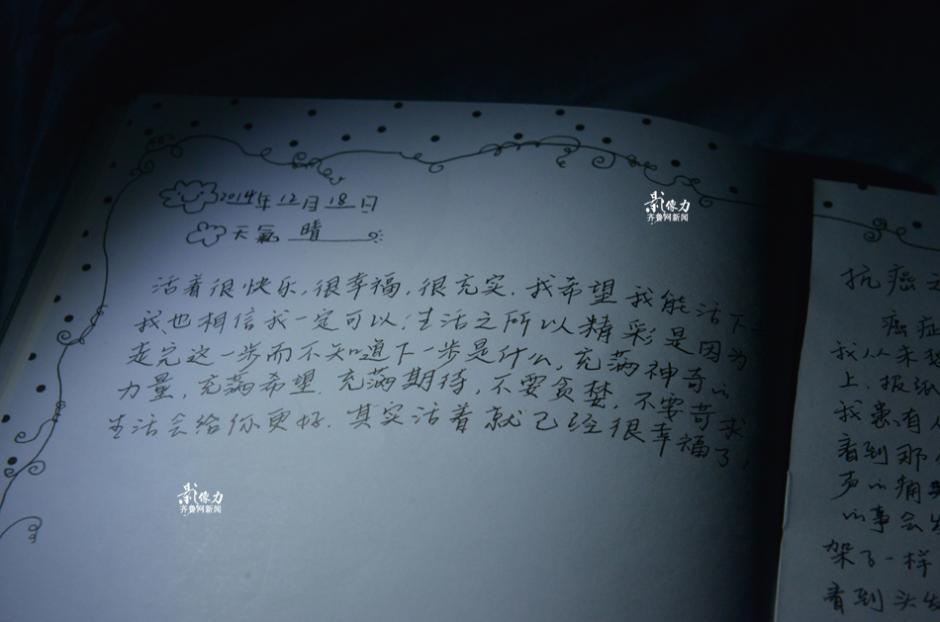 2014年 12月 18日
天氣 晴
活着很快乐,很幸福,很充实.我希望我能活下
我也相信我一定可以.生活之所以精彩是因为
走完这一步而不知道下一步是什么,充满神奇的
力量,充满希望.充满期待,不要贪婪,不要苛求
生活会给你更好.其实活着就已经很幸福了,
抗癌之
癌症
我从来
上.报纸
我患有
看到那
声的痛
的事会
架子一样
看到头发
影像力
齐鲁网新闻
影像力
齐鲁网新闻